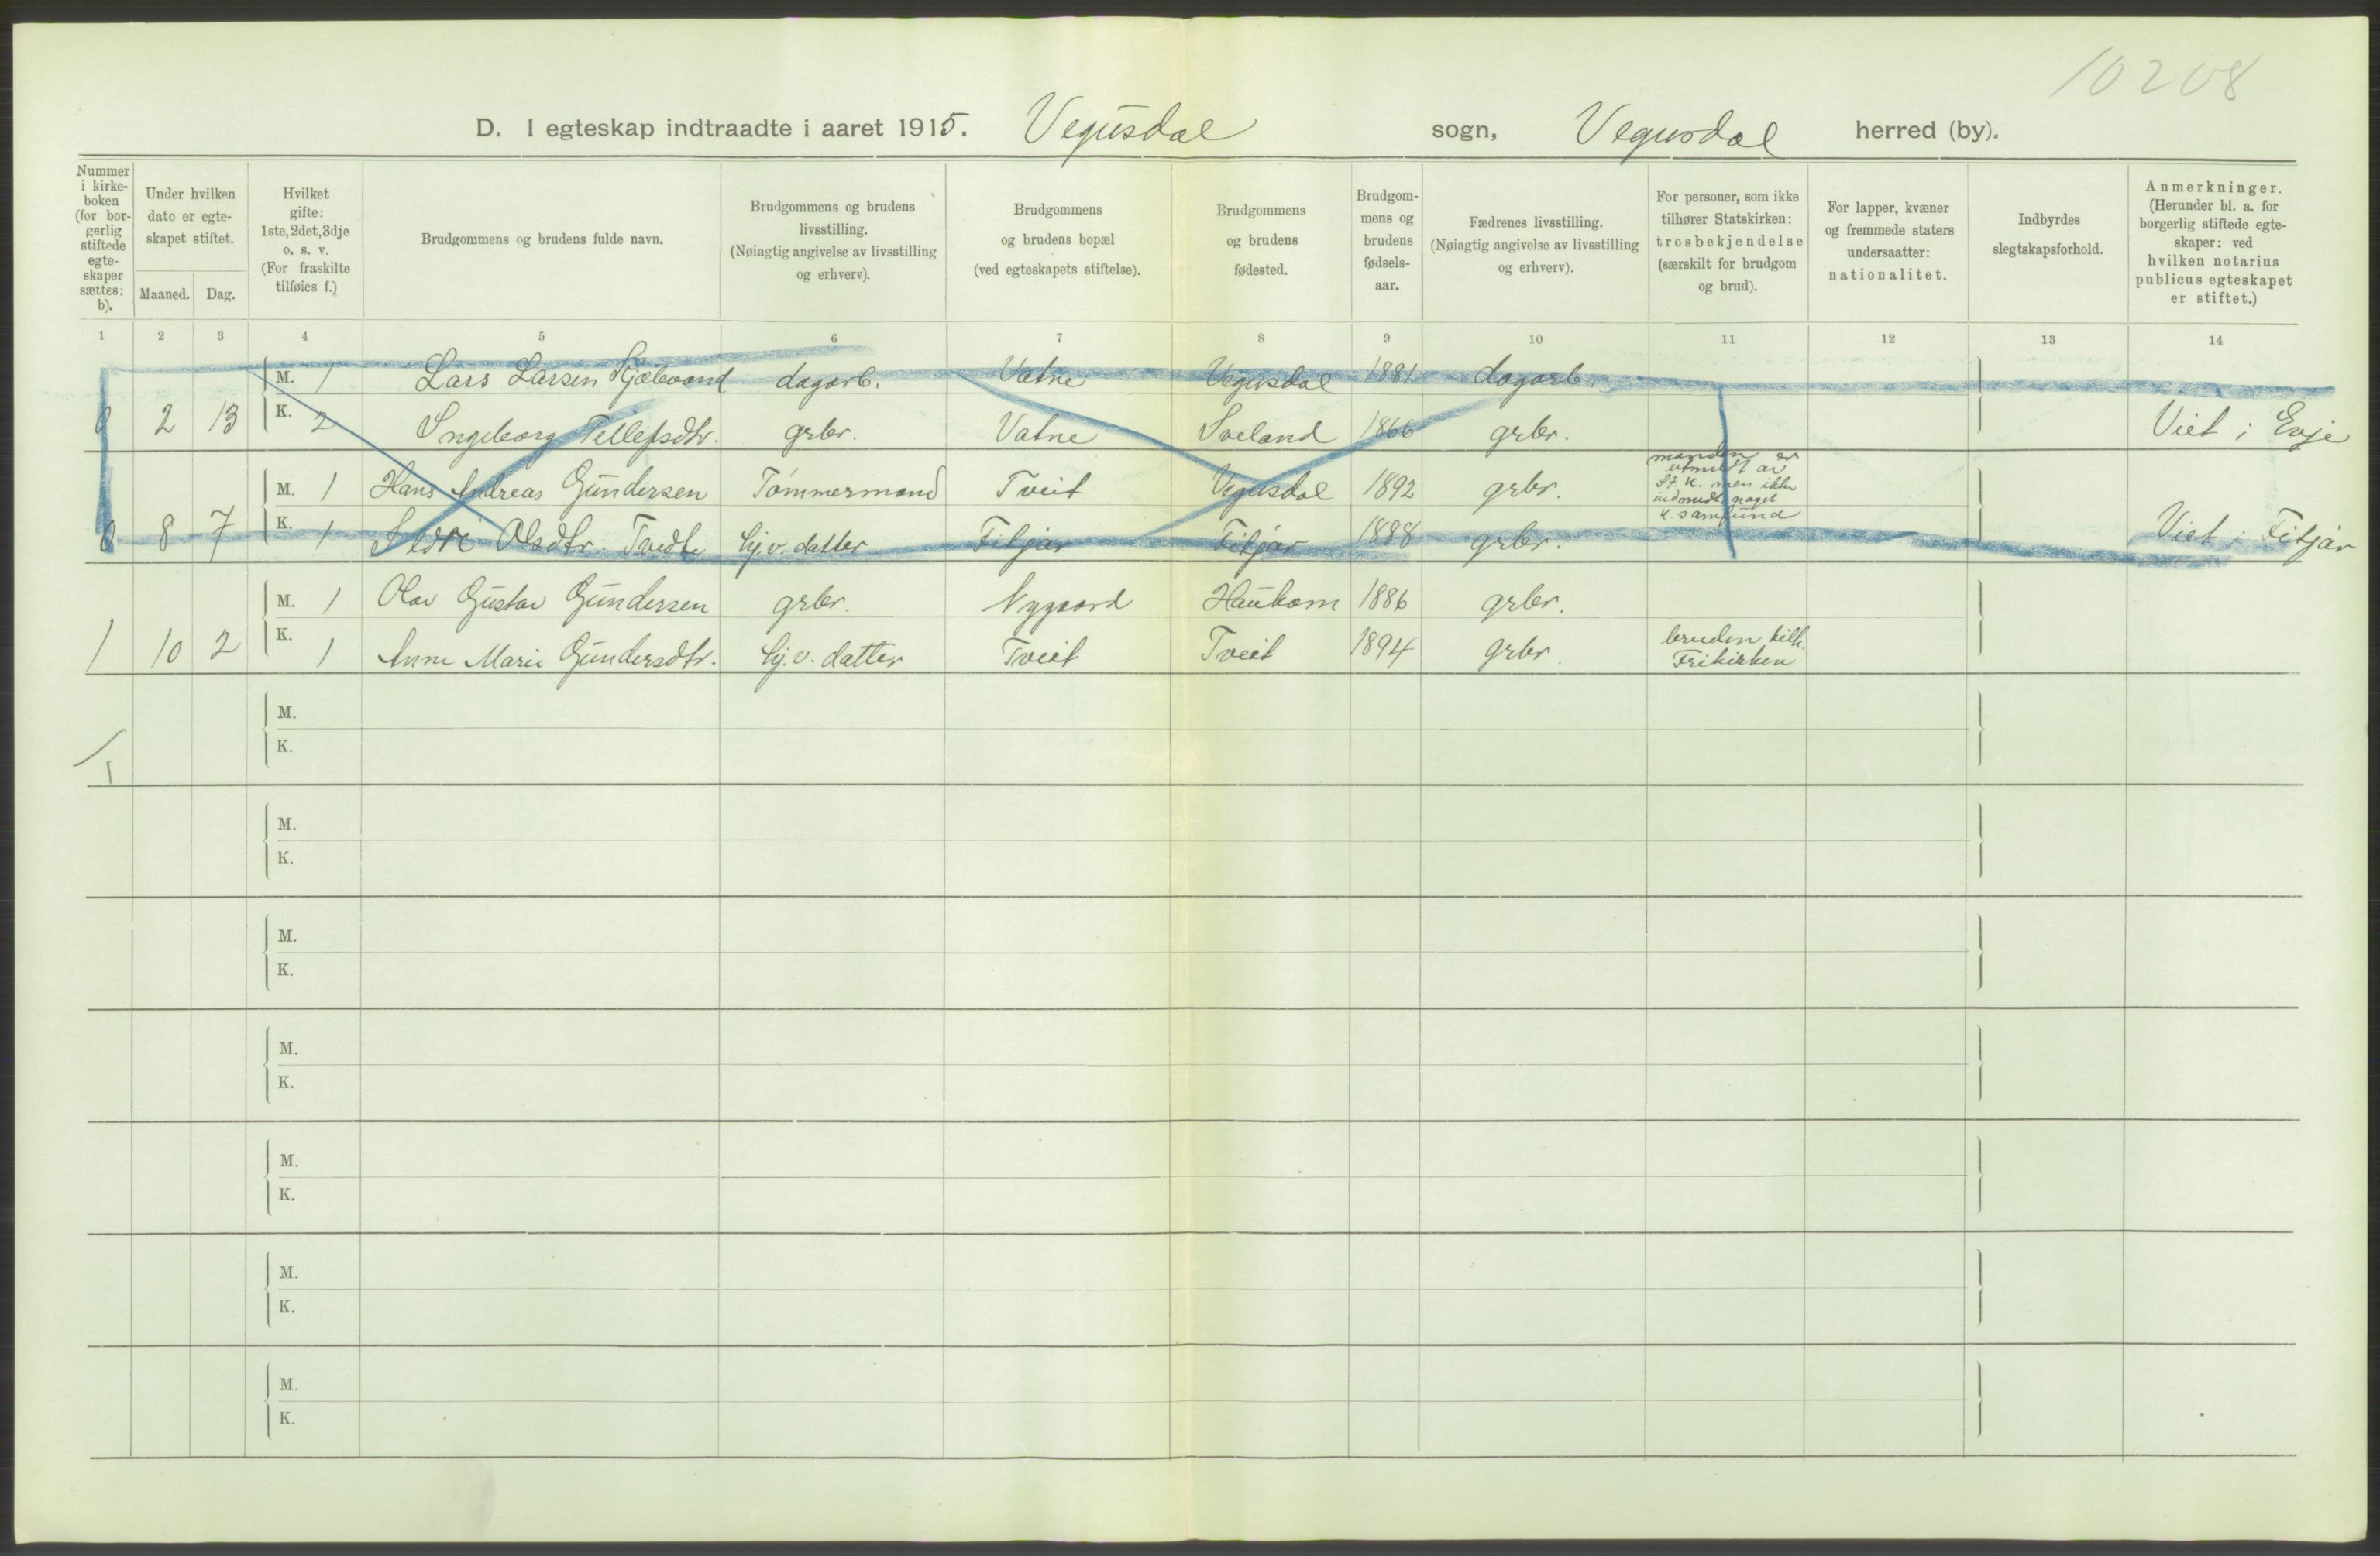 10208
D. I egteskap indtraadte i aaret 1915. Vegusdal sogn, Vegusdal herred (by).
Nummer i kirke-boken (for bor-gerlig stiftede egte-skaper sættes: b).
Under hvilken dato er egte-skapet stiftet.
Maaned. Dag.
Hvilket gifte: 1ste, 2det, 3dje o. s. v. (For fraskilte tilføies f.)
Brudgommens og brudens fulde navn.
Brudgommens og brudens livsstilling. (Nøiagtig angivelse av livsstilling og erhverv).
Brudgommens og brudens bopæl (ved egteskapets stiftelse).
Brudgommens og brudens fødested.
Brudgom-mens og brudens fødsels-aar.
Fædrenes livsstilling. (Nøiagtig angivelse av livsstilling og erhverv).
For personer, som ikke tilhører Statskirken: trosbekjendelse (særskilt for brudgom og brud).
For lapper, kvæner og fremmede staters undersaatter: nationalitet.
Indbyrdes slegtskapsforhold.
Anmerkninger. (Herunder bl. a. for borgerlig stiftede egte-skaper: ved hvilken notarius publicus egteskapet er stiftet.)
1 2 3 4 5 6 7 8 9 10 11 12 13 14
M. 1 Lars Larsen dagarb. Vatne Vegusdal 1881 dagarb.
0 2 13 K. 2 Ingeborg Tellefsdtr. grbr. Vatne Sveland 1866 grbr. Viet i Evje
M. 1 Hans Andreas Gundersen Tømmermand Tveit Vegusdal 1892 grbr. manden er utmeldt av St. K. men ikke indmeldt noget K. samfund
0 8 7 K. 1 Olsdtr. Tvedte hj.v. datter Fitjar Fitjar 1888 grbr. Viet i Fitjar
M. 1 Olav Gustav Gundersen grbr. Nygaard Haukom 1886 grbr.
1 10 2 K. 1 Anne Marie Gundersdtr. hj.v. datter Tveit Tveit 1894 grbr. bruden tilh. Frikirken
M.
K.
1
M.
K.
M.
K.
M.
K.
M.
K.
M.
K.
M.
K.